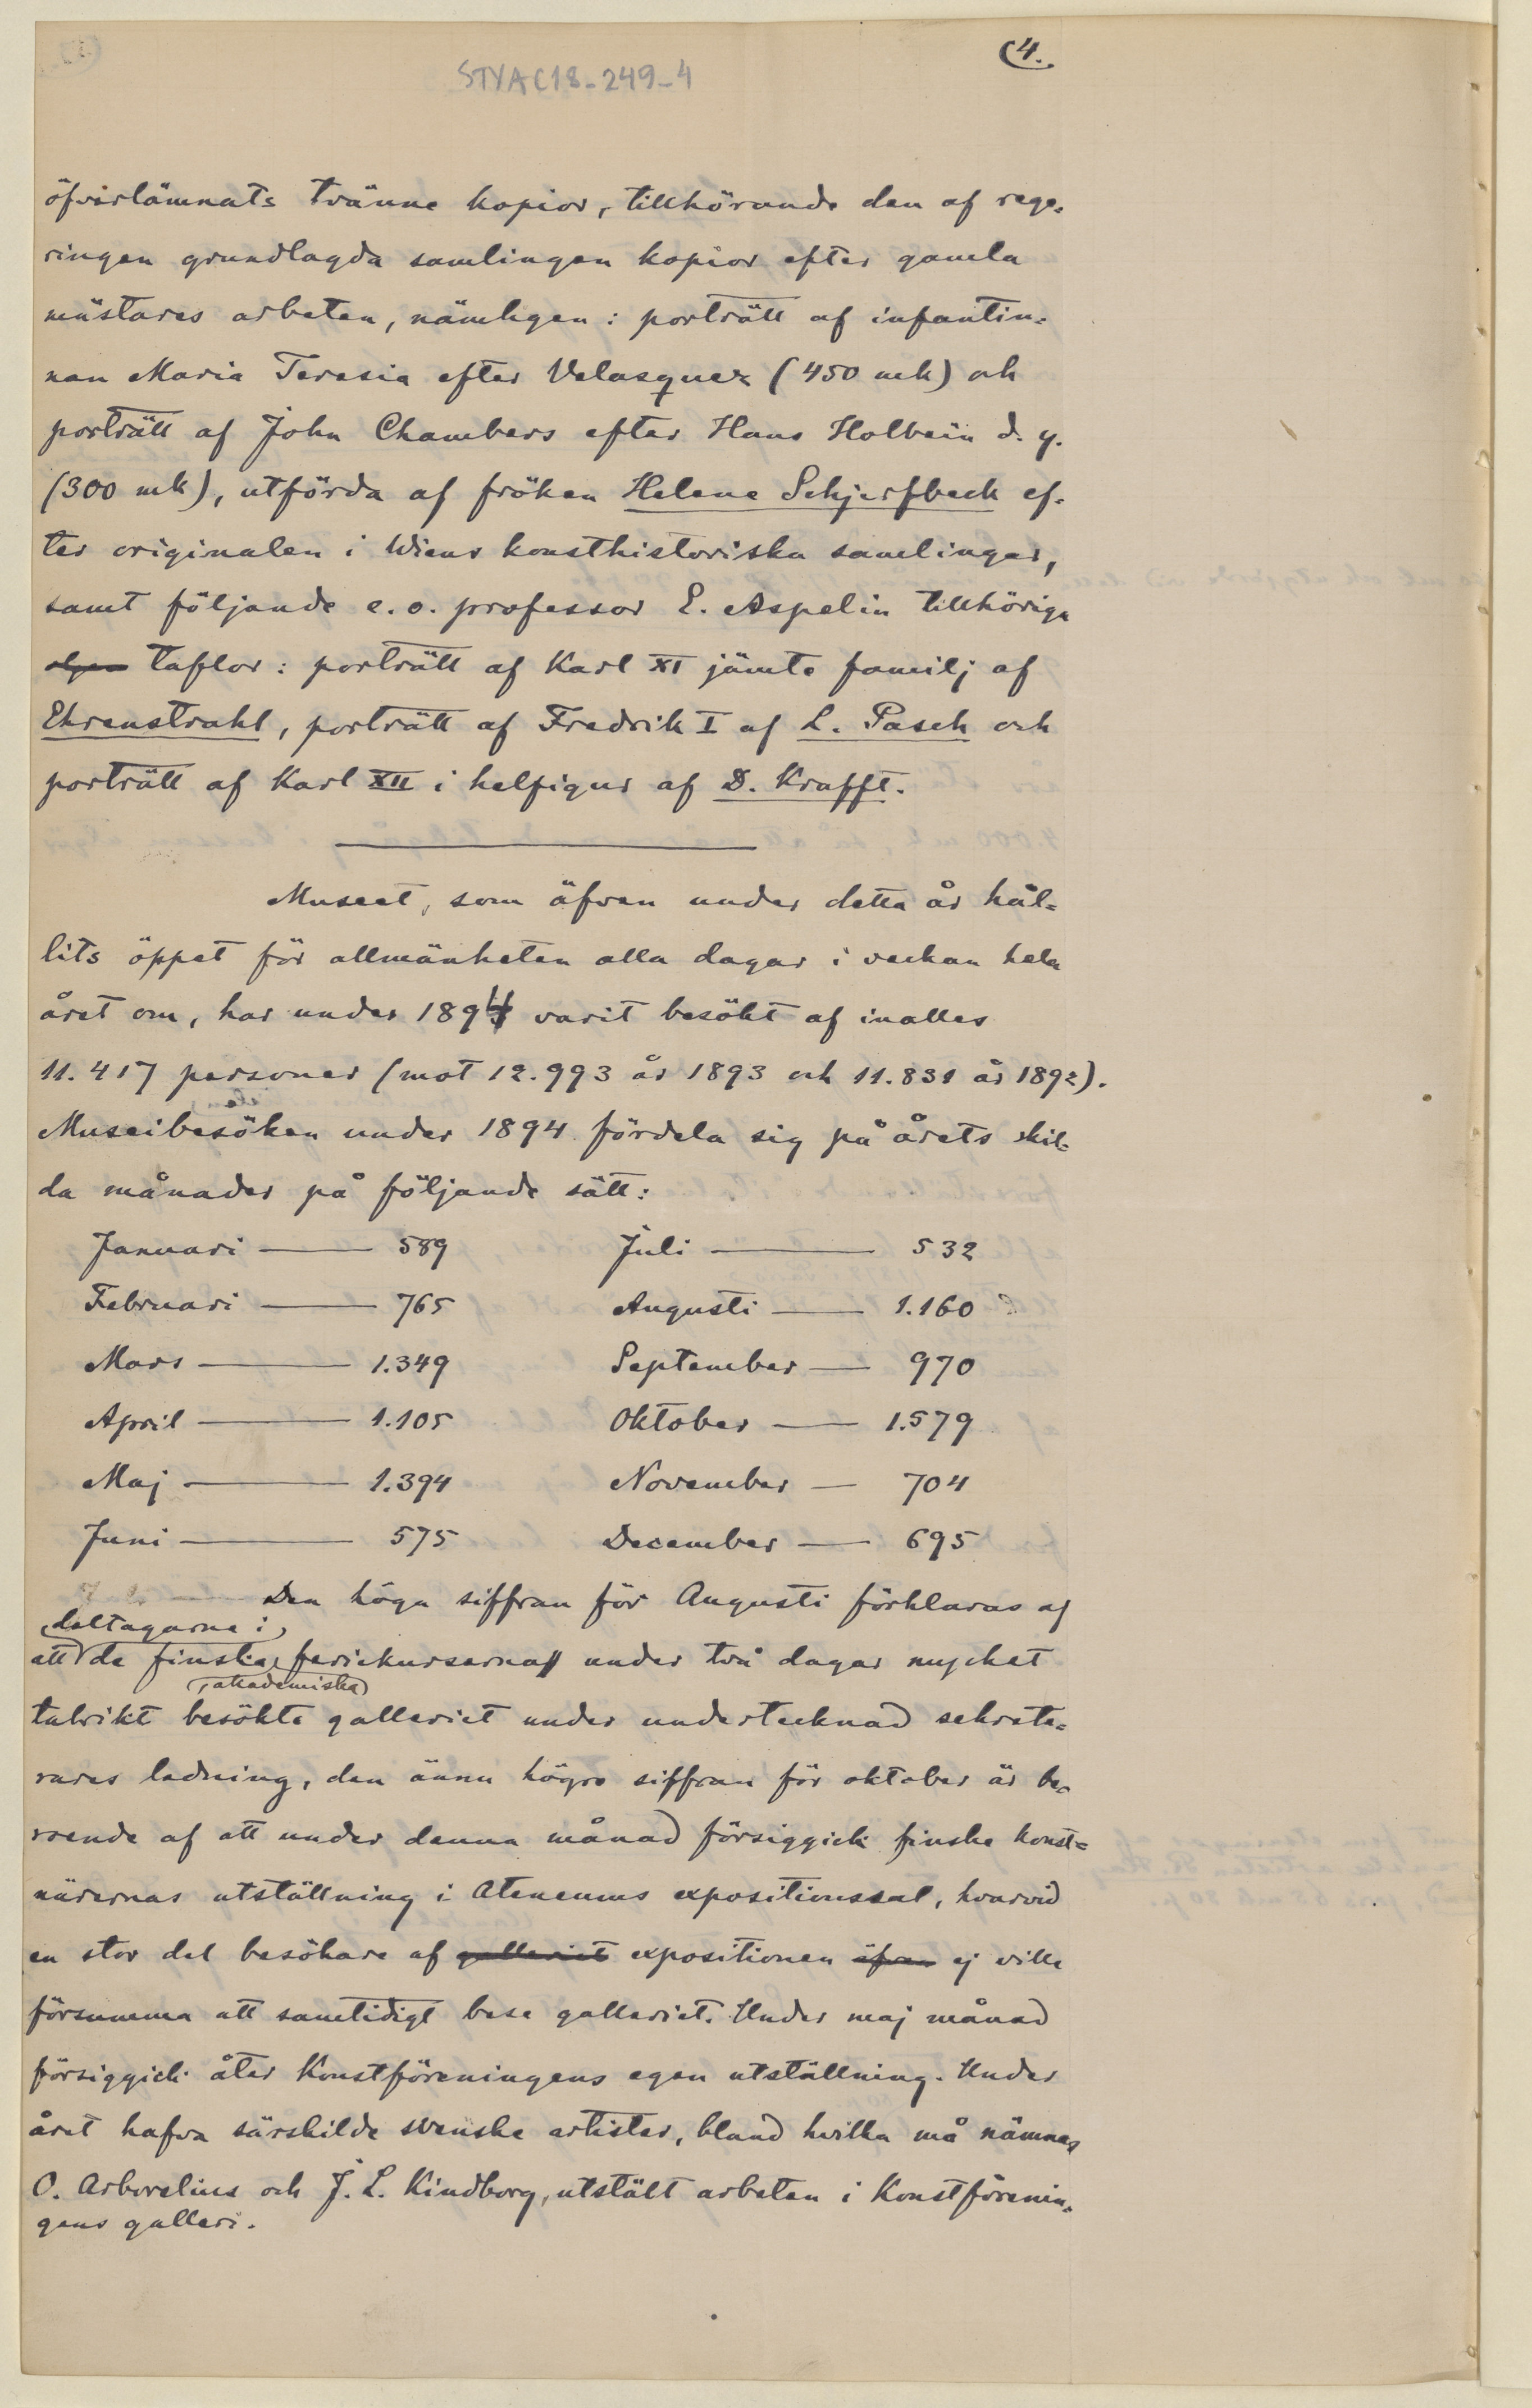 (4.
STYA C18-249-4
öfverlämnats tvänne kopior, tillhörande den af rege-
ringen grundlagda samlingen kopior efter gamla
mästares arbeten, nämligen: porträtt af infantin-
nan Maria Teresia efter Velasquez (450 mk) och
porträtt af John Chambers efter Hans Holbein d. y.
(300 mk), utförda af fröken Helene Schjerfbeck ef-
ter originalen i Wiens konsthistoriska samlingar,
samt följande e. o. professor E. Aspelin tillhöriga
taflor: porträtt af Karl XI jämte familj af
Ehrenstrahl, porträtt af Fredrik I af L. Pasch och
porträtt af Karl XII i helfigur af D. Krafft.
Museet, som äfven under detta år hål-
lits öppet för allmänheten alla dagar i veckan hela
året om, har under 1894 varit besökt af inalles
11.417 personer (mot 12.993 år 1893 och 11.831 år 1892).
Museibesöken under 1894 fördela sig på årets skil-
da månader på följande sätt:
Januari — 589 Juli — 532
Februari — 765 Augusti — 1.160
Mars — 1.349 September — 970
April — 1.105 Oktober — 1.579
Maj — 1.394 November — 704
Juni — 575 December — 695
Den höga siffran för Augusti förklaras af
deltagarne i
att de finska feriekurserna under två dagar mycket
akademiska
talrikt besökte galleriet under undertecknad sekrete-
rares ledning, den ännu högre siffran för oktober är be-
roende af att under denna månad försiggick finske konst-
närernas utställning i Ateneums expositionssal, hvarvid
en stor del besökare af galleriet expositionen äfven ej ville
försumma att samtidigt bese galleriet. Under maj månad
försiggick åter Konstföreningens egen utställning. Under
året hafva särskilde svenske artister, bland hvilka må nämnas
O. Arborelius och J. L. Kindborg, utstält arbeten i Konstförenin-
gens galleri.